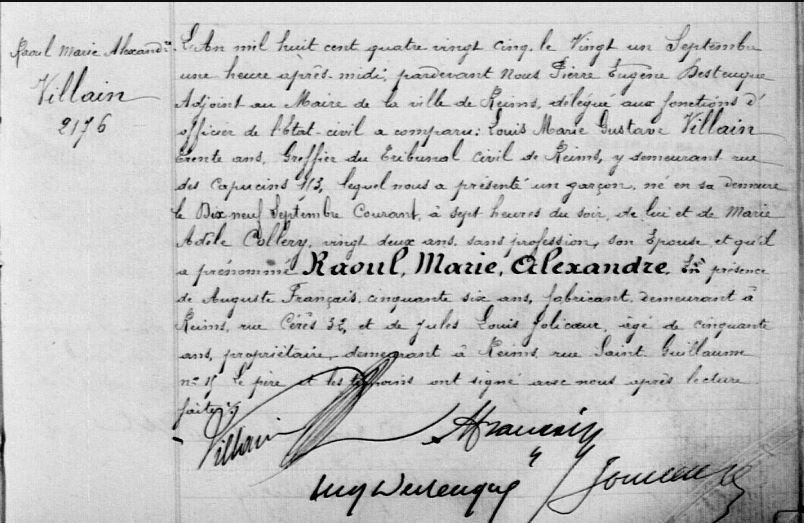 Raoul Marie Alexandre
Villain
2176
L'An mil huit cent quatre vingt cinq, le Vingt un Septembre
une heure après-midi, pardevant Nous Pierre Eugène Desteuque
Adjoint au Maire de la ville de Reims, délégué aux fonctions d'
officier de l'État-civil a comparu: Louis Marie Gustave Villain
trente ans, Greffier du Tribunal Civil de Reims, y demeurant rue
des Capucins 113, lequel nous a présenté un garçon, né en sa demeure
le Dix neuf Septembre Courant, à sept heures du soir, de lui et de Marie
Adèle Collery, vingt deux ans, sans profession, son Épouse, et qu'il
a prénommé Raoul, Marie, Alexandre. En présence
de Auguste Français, cinquante six ans, fabricant, demeurant à
Reims, rue Cérès 32, et de Jules Louis Jolicœur, âgé de cinquante
ans, propriétaire, demeurant à Reims, rue Saint Guillaume
n° Le père et les témoins ont signé avec nous après lecture
faite
Villain
AFrançois
Eug Desteuque